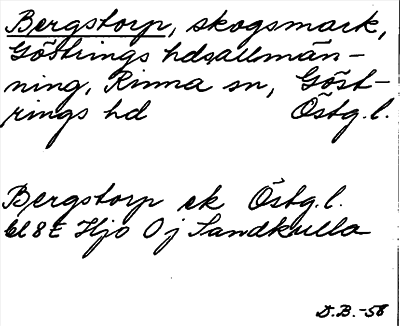 Bergstorp, skogsmark,
Göstrings hdsallmän-
ning, Rinna sn, Göst-
rings hd Östg.l.
Bergstorp ek Östg.l.
bl 8E Hjo Öj Sandkulla
D.B.-58